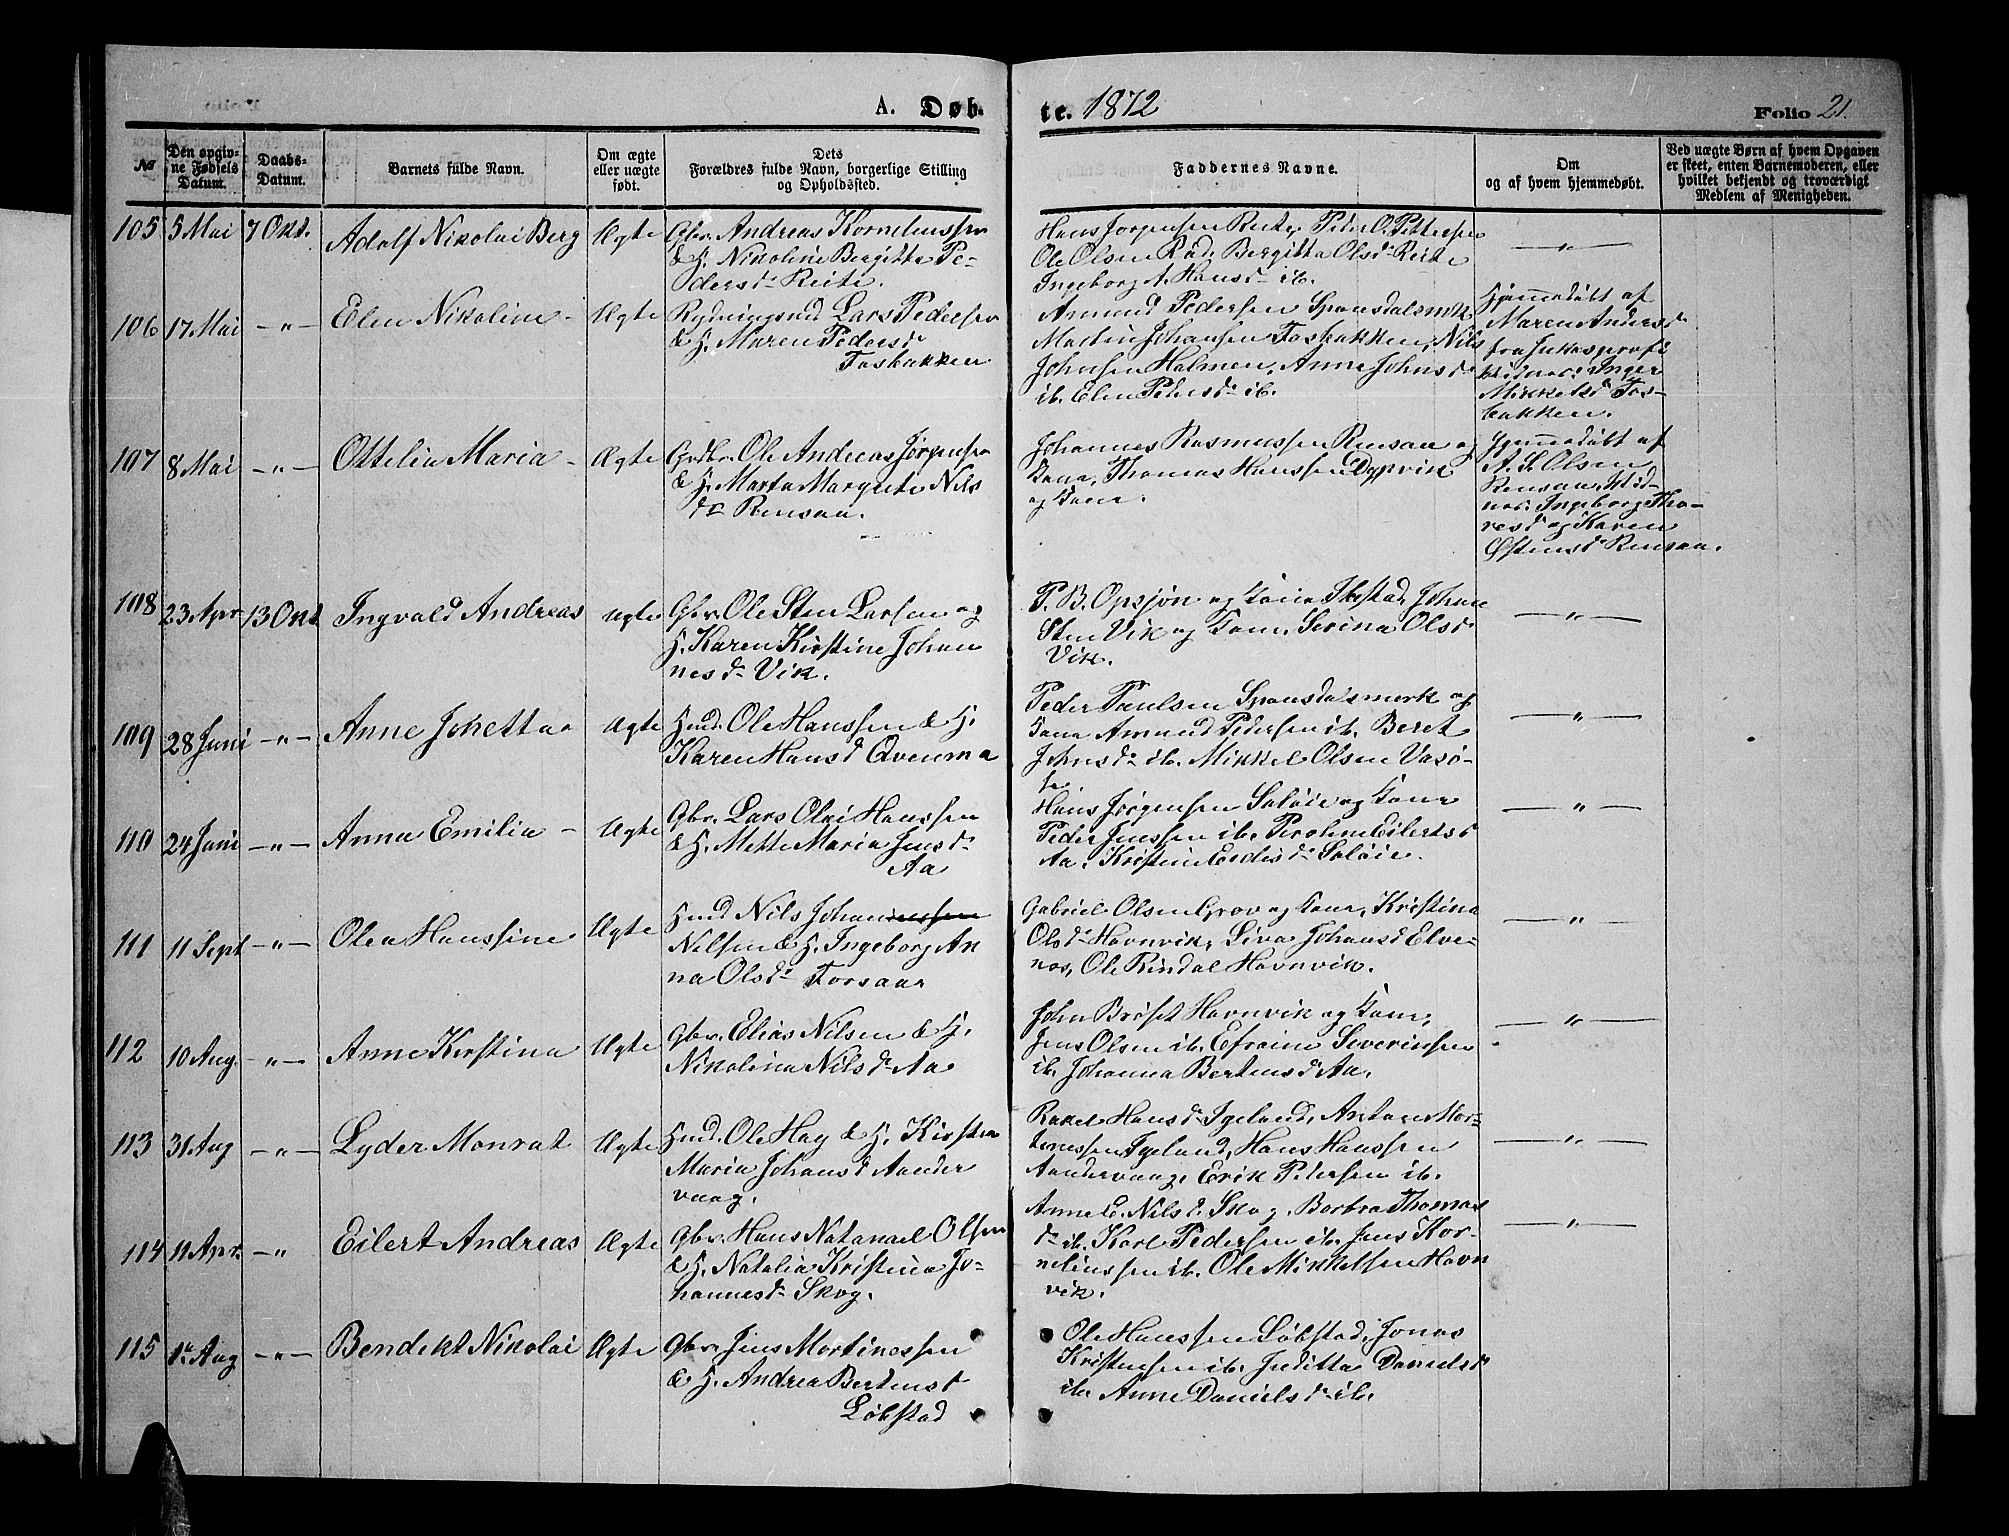 A. Døb-
te. 1872
Folio 21.
№
Den opgiv-
ne Fødsels
Datum.
Daabs-
Datum.
Barnets fulde Navn.
Om ægte
eller uægte
født.
Dets
Forældres fulde Navn, borgerlige Stilling
og Opholdssted.
Faddernes Navne.
Om
og af hvem hjemmedøbt.
Ved uægte Børn af hvem Opgaven
er skeet, enten Barnemoderen, eller
hvilket bekjendt og troværdigt
Medlem af Menigheden.
105 5 Mai 7 Okt. Adolf Nikolai Berg Ægte
Gbr. Andreas Korneliussen
& H. Nikoline Bergitta Pe-
dersd. Reite.
Hans Jørgensen Reite, Peder O. Pettersen
Ole Olsen Rød, Bergitta Olsd. Reite
Ingeborg A. Hansd. ib.
— " —
106 17 Mai — " — Elen Nikoline - Ægte
Rydningsmd Lars Pedersen
& H. Maren Pedersd
Fosbakken
Amund Pedersen Spansdalsmrk
Martin Johansen Fosbakken, Nils
Johnsen Holmen, Anne Johnsd
ib. Elen Pedersd. ib.
Hjemmedøbt af
Maren Andersd
fra
Vidner: Inger
Mikkelsd Fos-
bakken.
107 8 Mai — " — Ottelia Maria - Ægte
Gbr. Ole Andreas Jørgensen
& H. Marta Margrete Nils
dr Rensaa.
Johannes Rasmussen Rensaa og
Kone, Thomas Hanssen Dypvik
og Kone.
Hjemmedøbt af
A. S. Olsen
Rensaa, Vid-
ner: Ingeborg Tho-
resd og Karen
Østensd Rensaa.
108 23 Apr 13 Okt Ingvald Andreas Ægte
Gbr. Ole Sten Larsen og
H. Karen Kirstine Johan
nesd. Vik.
P. B. Opsjøn og Kone Ibestad, Johan
Sten Vik og Kone, Serina Olsd
Vik.
— " —
109 28 Juni — " — Anne Johetta - Ægte
Hmd. Ole Hanssen & H.
Karen Hansd Qvenma
Peder Paulsen Spansdalsmerk og
Kone Amund Pedersen ib. Beret
Johnsd. ib. Mikkel Olsen Vasø-
— " —
110 24 Juni — " — Anna Emilia - Ægte
Gbr. Lars Olai Hanssen
& H. Mette Maria Jensd.
Aa
Hans Jørgensen Saløie og Kone
Peder Jenssen ib. Eilertsd
Aa. Kristine Saløie.
— " —
111 11 Sept — " — Olea Hanssine Ægte
Hmd Nils Johannessen
Nilsen & H. Ingeborg An
na Olsd. Forsaa
Gabriel Olsen Grov og Kone, Kristina
Olsd. Havnvik, Siva Johansd Elve-
nes, Ole Rindal Havnvik.
— " —
112 10 Aug. — " — Anne Kirstina Ægte
Gbr. Elias Nilsen & H.
Nikolina Nilsd. Aa
John Brøset Havnvik og Kone,
Jens Olsen ib. Efraim Severinsen
ib. Johanna Bertensd Aa.
— " —
113 31 Aug — " — Lyder Monrat Ægte
Hmd. Ole Hag & H. Kirsten
Maria Johansd Aander
vaag.
Rakel Hansd. Igeland, Anton Mor-
tenssen Igeland, Hans Hanssen
Aandervaag, Erik Pedersen ib.
— " —
114 11 Apr. — " Eilert Andreas Ægte
Gbr. Hans Natanael Olsen
& H. Natalia Kristina Jo-
hannesd. Skog.
Anne E. Nilsd. Skog, Barbra Thomas
dr. ib. Karl Pedersen ib. Jens Kor-
neliussen ib. Ole Mikkelsen Havn
vik.
— " —
115 1te Aug — " — Bendikt Nikolai Ægte
Gbr. Jens Mortinessen
& H. Andrea Bertensd
Løbstad
Ole Hanssen Løbstad, Jonas
Kristensen ib. Juditta Danielsd
ib. Anne Danielsd. ib.